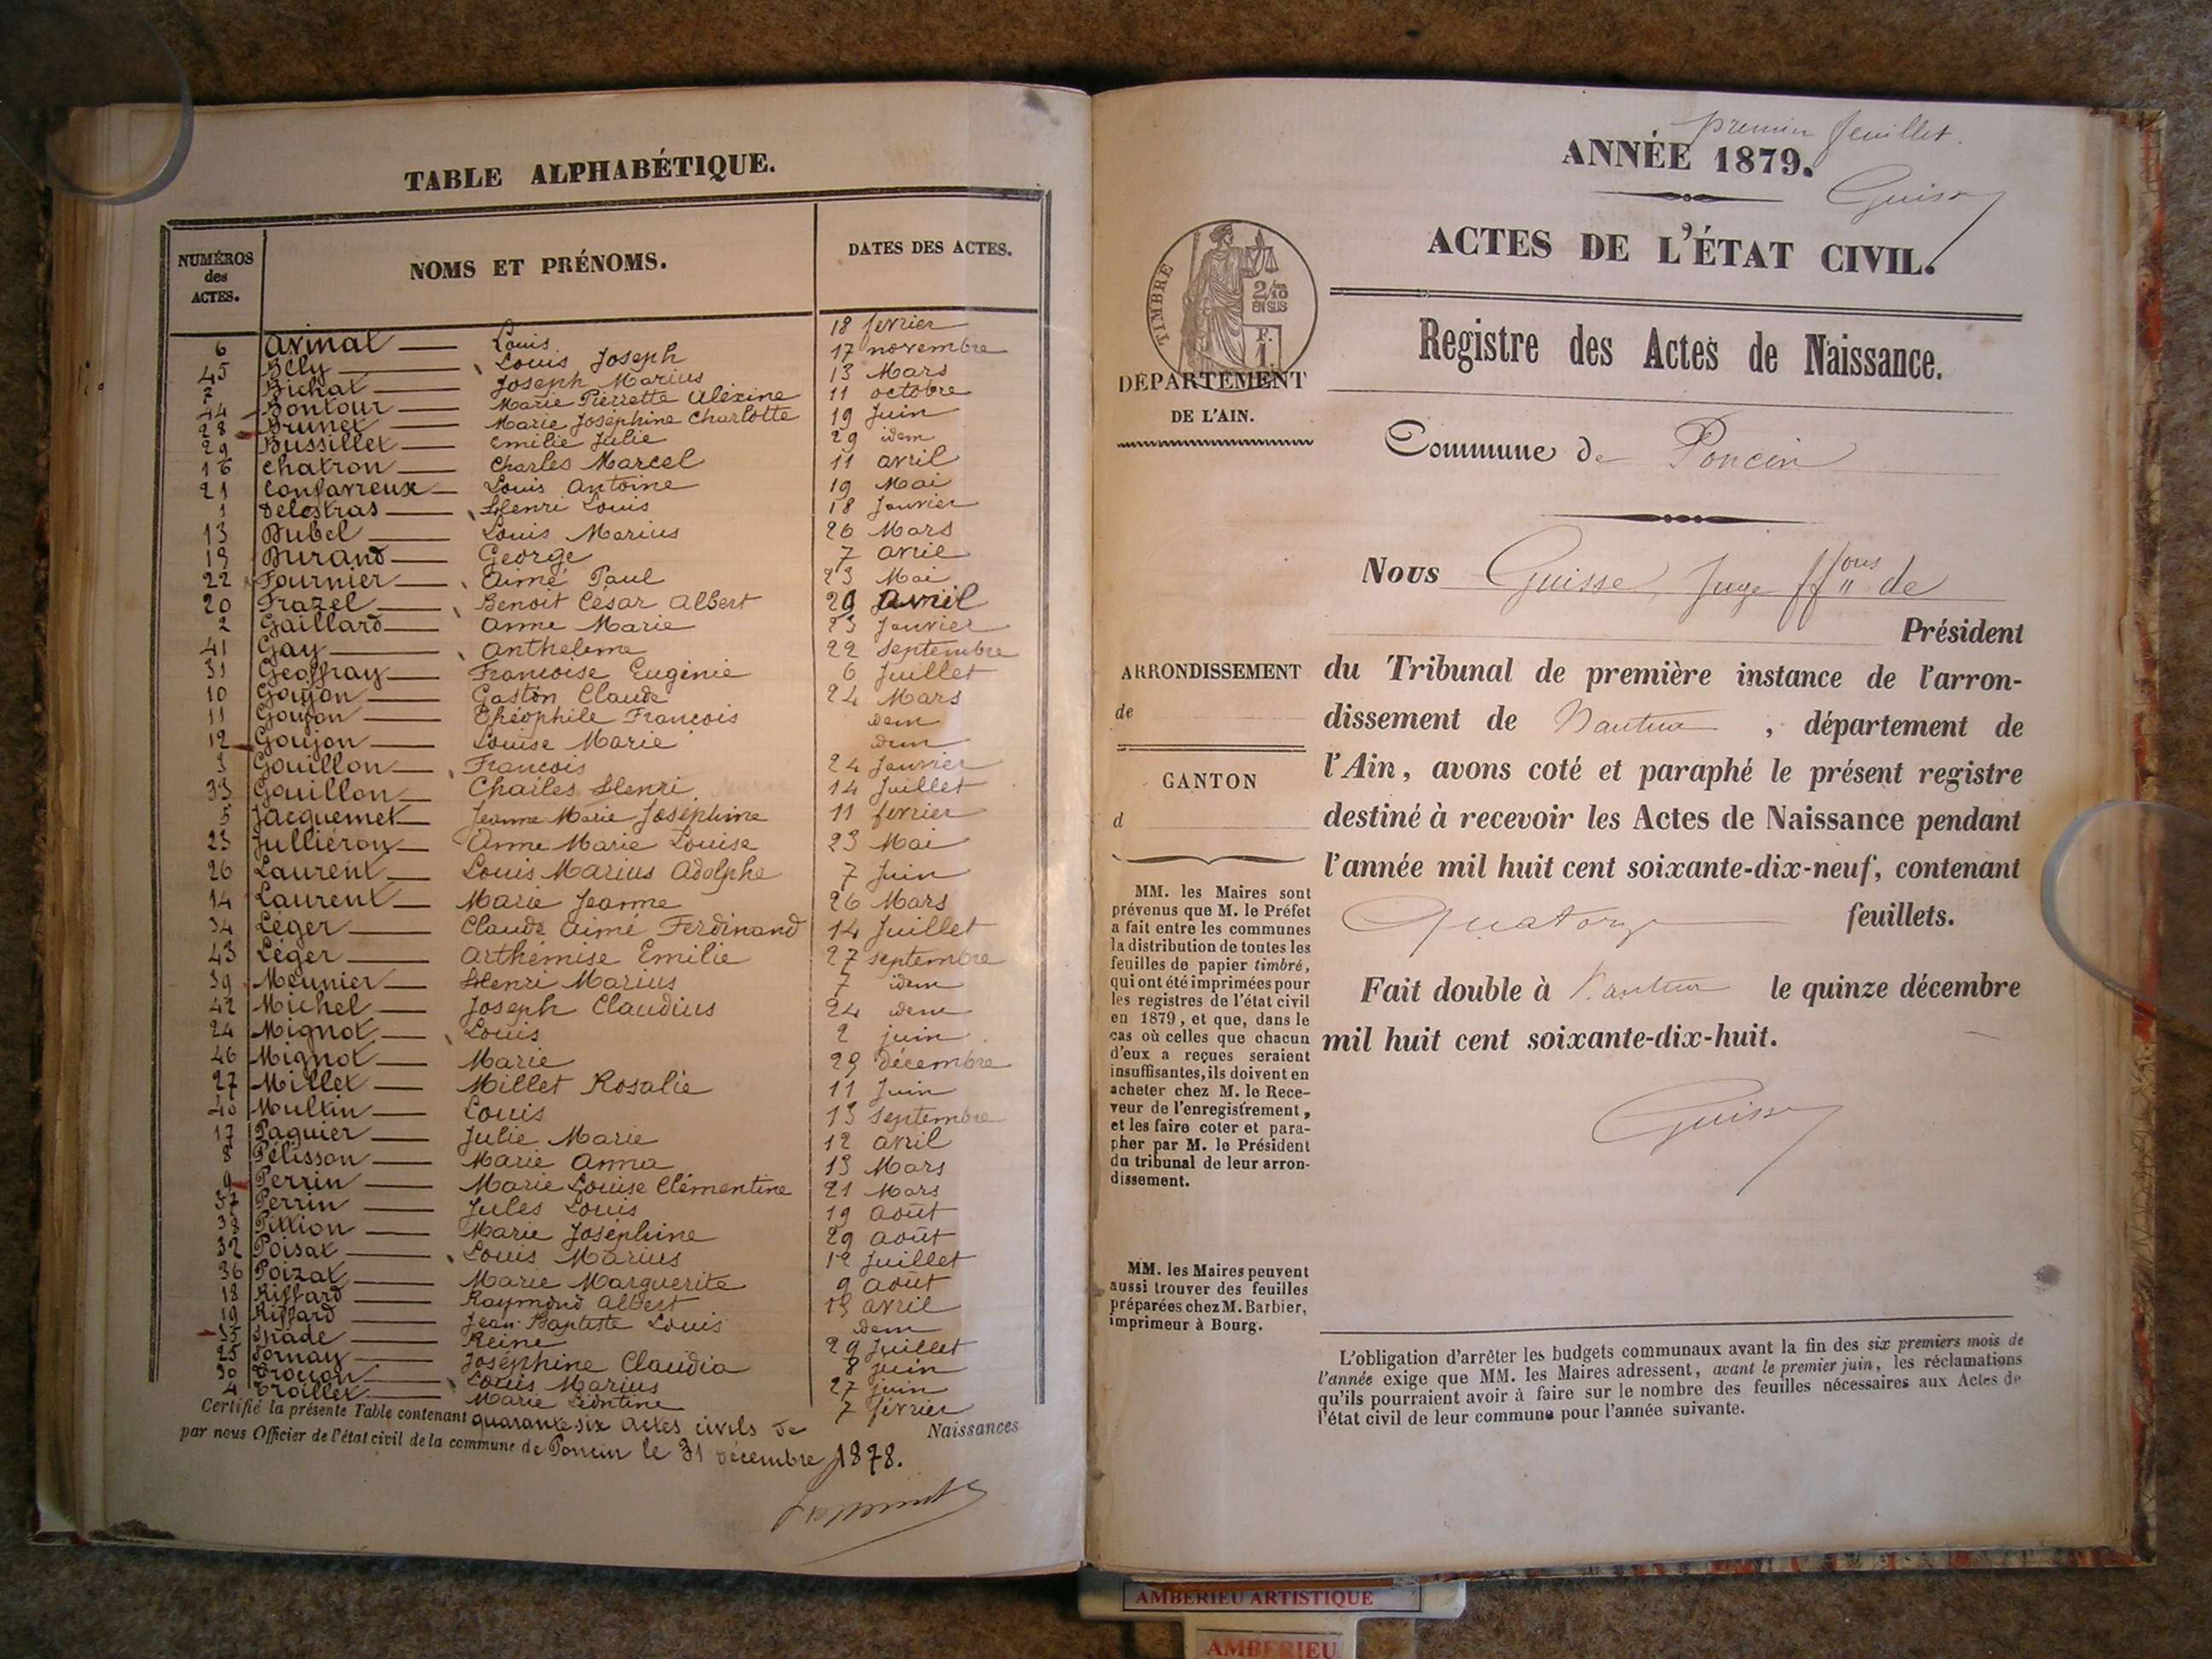 TABLE ALPHABÉTIQUE.
NUMÉROS des ACTES. NOMS ET PRÉNOMS. DATES DES ACTES.
6 Avinal Louis 18 fevrier
45 Bély Louis Joseph 17 novembre
7 Bichat Joseph Marius 13 Mars
44 Bontour Marie Pierrette Alexine 11 octobre
28 Brunet Marie Joséphine Charlotte 19 Juin
29 Bussillet Emilie Julie 29 idem
16 Chatron Charles Marcel 11 avril
21 Confavreux Louis Antoine 19 Mai
1 Delostras Henri Louis 18 Janvier
13 Dubel Louis Marius 26 Mars
15 Durand George 7 avril
22 Fournier Aimé Paul 23 Mai
20 Frazel Benoit César Albert 29 Avril
2 Gaillard Anne Marie 23 Janvier
41 Gay Anthelme 22 Septembre
31 Geoffray Francoise Eugénie 6 Juillet
10 Goujon Gaston Claude 24 Mars
11 Goujon Théophile Francois idem
12 Goujon Louise Marie idem
3 Gouillon Francois 24 Janvier
33 Gouillon Charles Henri 14 Juillet
5 Jacquemet Jeanne Marie Joséphine 11 fevrier
23 Julliéron Anne Marie Louise 23 Mai
26 Laurent Louis Marius Adolphe 7 Juin
14 Laurent Marie Jeanne 26 Mars
34 Léger Claude Aimé Ferdinand 14 Juillet
43 Léger Arthémise Emilie 27 septembre
39 Meunier Henri Marius 7 idem
42 Michel Joseph Claudius 24 idem
24 Mignot Louis 2 juin
46 Mignot Marie 29 décembre
27 Millet Millet Rosalie 11 Juin
40 Multin Louis 13 Septembre
17 Paquier Julie Marie 12 avril
8 Pélisson Marie Anna 13 Mars
9 Perrin Marie Louise Clémentine 21 Mars
37 Perrin Jules Louis 19 Août
38 Pittion Marie Joséphine 29 août
32 Poisat Louis Marius 12 Juillet
36 Poizat Marie Marguerite 9 août
18 Riffard Raymond Albert 13 avril
19 Riffard Jean Baptiste Louis idem
35 Spade Reine 29 Juillet
25 Tornay Joséphine Claudia 8 juin
30 Louis Marius 27 juin
4 Troillet Marie Léontine 7 février
Certifié la présente Table contenant quarante-six actes civils de Naissances
par nous Officier de l'état civil de la commune de Poncin le 31 décembre 1878.
premier feuillet.
ANNÉE 1879.
Guisse
ACTES DE L'ÉTAT CIVIL.
TIMBRE
2/10
EN SUS
F.
1.
Registre des Actes de Naissance.
DÉPARTEMENT
DE L'AIN.
Commune de Poncin
Nous Guisse, Juge ffons de
Président
ARRONDISSEMENT
de
CANTON
d
du Tribunal de première instance de l'arron-
dissement de Nantua, département de
l'Ain, avons coté et paraphé le présent registre
destiné à recevoir les Actes de Naissance pendant
l'année mil huit cent soixante-dix-neuf, contenant
Quatorze feuillets.
Fait double à Nantua le quinze décembre
mil huit cent soixante-dix-huit.
Guisse
MM. les Maires sont
prévenus que M. le Préfet
a fait entre les communes
la distribution de toutes les
feuilles de papier timbré,
qui ont été imprimées pour
les registres de l'état civil
en 1879, et que, dans le
cas où celles que chacun
d'eux a reçues seraient
insuffisantes, ils doivent en
acheter chez M. le Rece-
veur de l'enregistrement,
et les faire coter et para-
pher par M. le Président
du tribunal de leur arron-
dissement.
MM. les Maires peuvent
aussi trouver des feuilles
préparées chez M. Barbier,
imprimeur à Bourg.
L'obligation d'arrêter les budgets communaux avant la fin des six premiers mois de
l'année exige que MM. les Maires adressent, avant le premier juin, les réclamations
qu'ils pourraient avoir à faire sur le nombre des feuilles nécessaires aux Actes de
l'état civil de leur commune pour l'année suivante.
AMBERIEU ARTISTIQUE
AMBERIEU